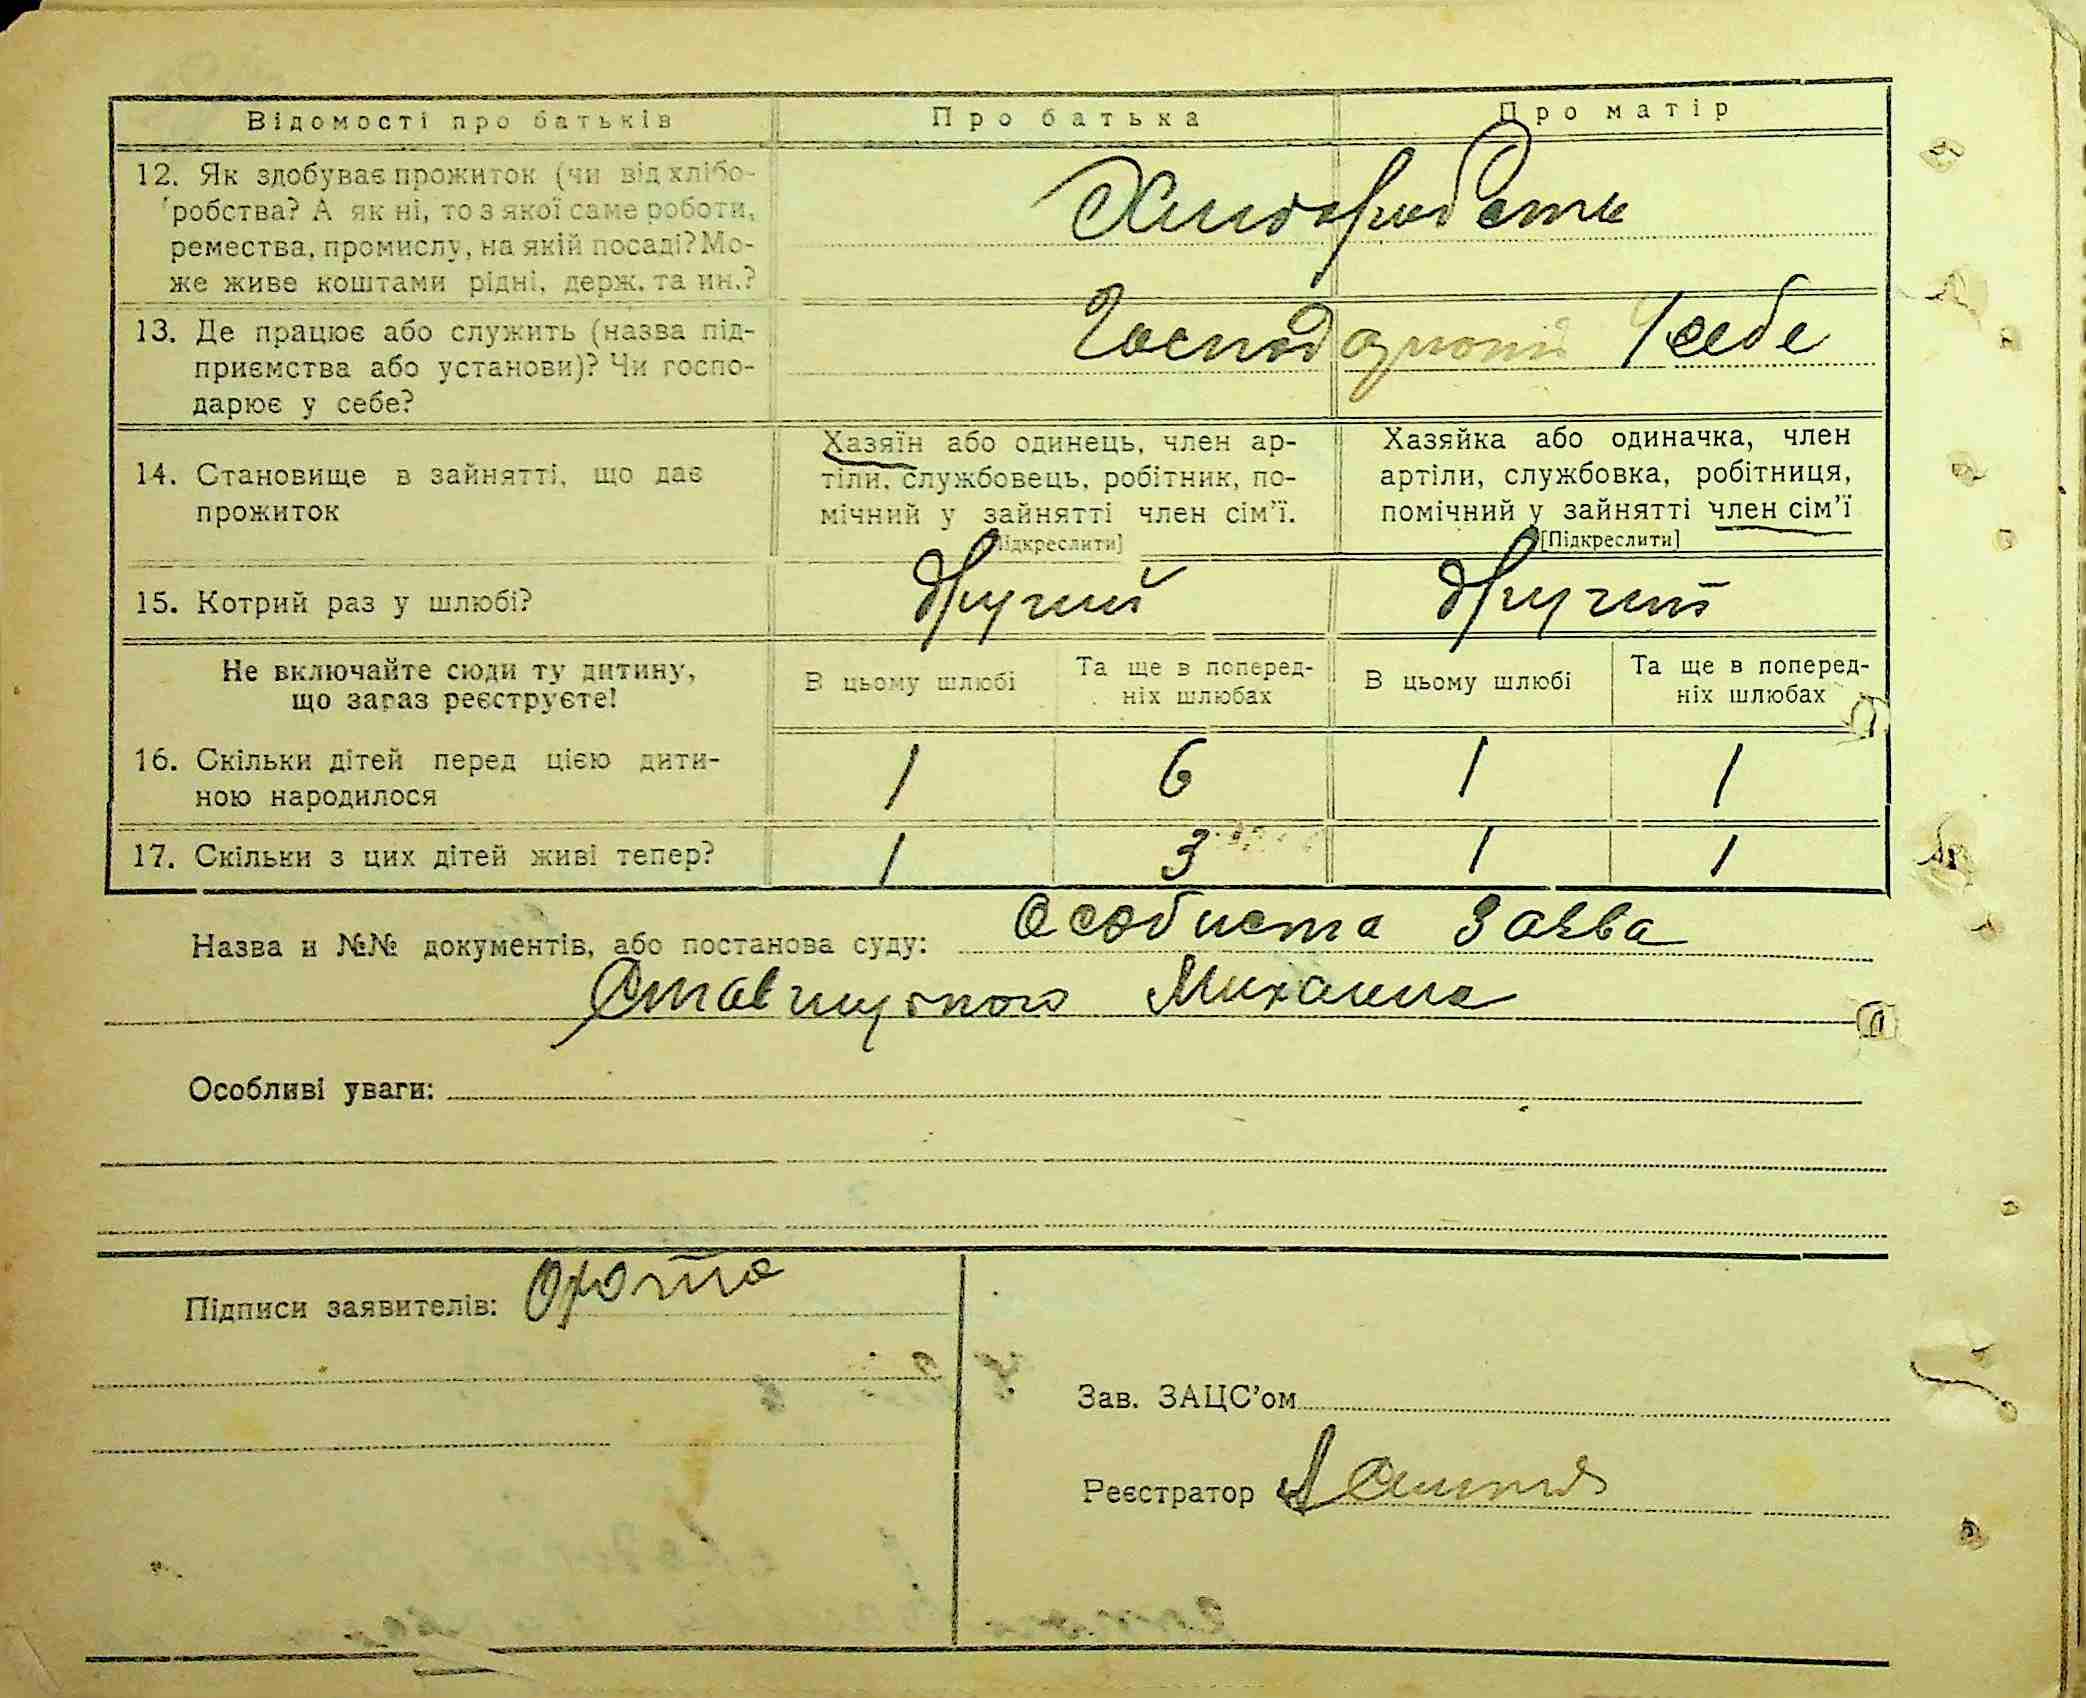 Відомості про батьків
Про батька
Про матір
12. Як здобуває прожиток (чи від хлібо-
робства? А як ні, то з якої саме роботи,
ремества, промислу, на якій посаді? Мо-
же живе коштами рідні, держ. та ин.?
Хліборобств
13. Де працює або служить (назва під-
приємства або установи)? Чи госпо-
дарює у себе?
У себе
14. Становище в зайнятті, що дає
прожиток
Хазяїн або одинець, член ар-
тіли, службовець, робітник, по-
мічний у зайнятті член сім'ї.
[Підкреслити]
Хазяйка або одиначка, член
артіли, службовка, робітниця,
помічний у зайнятті член сім'ї
[Підкреслити]
15. Котрий раз у шлюбі?
другий
другий
Не включайте сюди ту дитину,
що зараз реєструєте!
В цьому шлюбі
Та ще в поперед-
ніх шлюбах
В цьому шлюбі
Та ще в поперед-
ніх шлюбах
16. Скільки дітей перед цією дити-
ною народилося
1 6 1 1
17. Скільки з цих дітей живі тепер?
1 3 1 1
Назва и №№ документів, або постанова суду: Особиста Заява
Михаила
Особливі уваги:
Підписи заявителів:
Зав. ЗАЦС'ом
Реєстратор